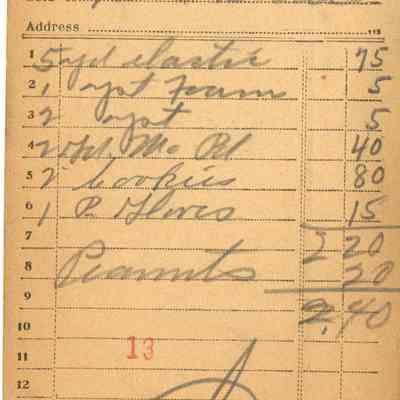 Address
1 5 yd elastic 75
2 1 ypt Foam 5
3 2 ypt 5
4 2 40
5 2 cookies 80
6 1 P. Gloves 15
7 2 20
8 Peanuts 20
9 2,40
10
11 13
12